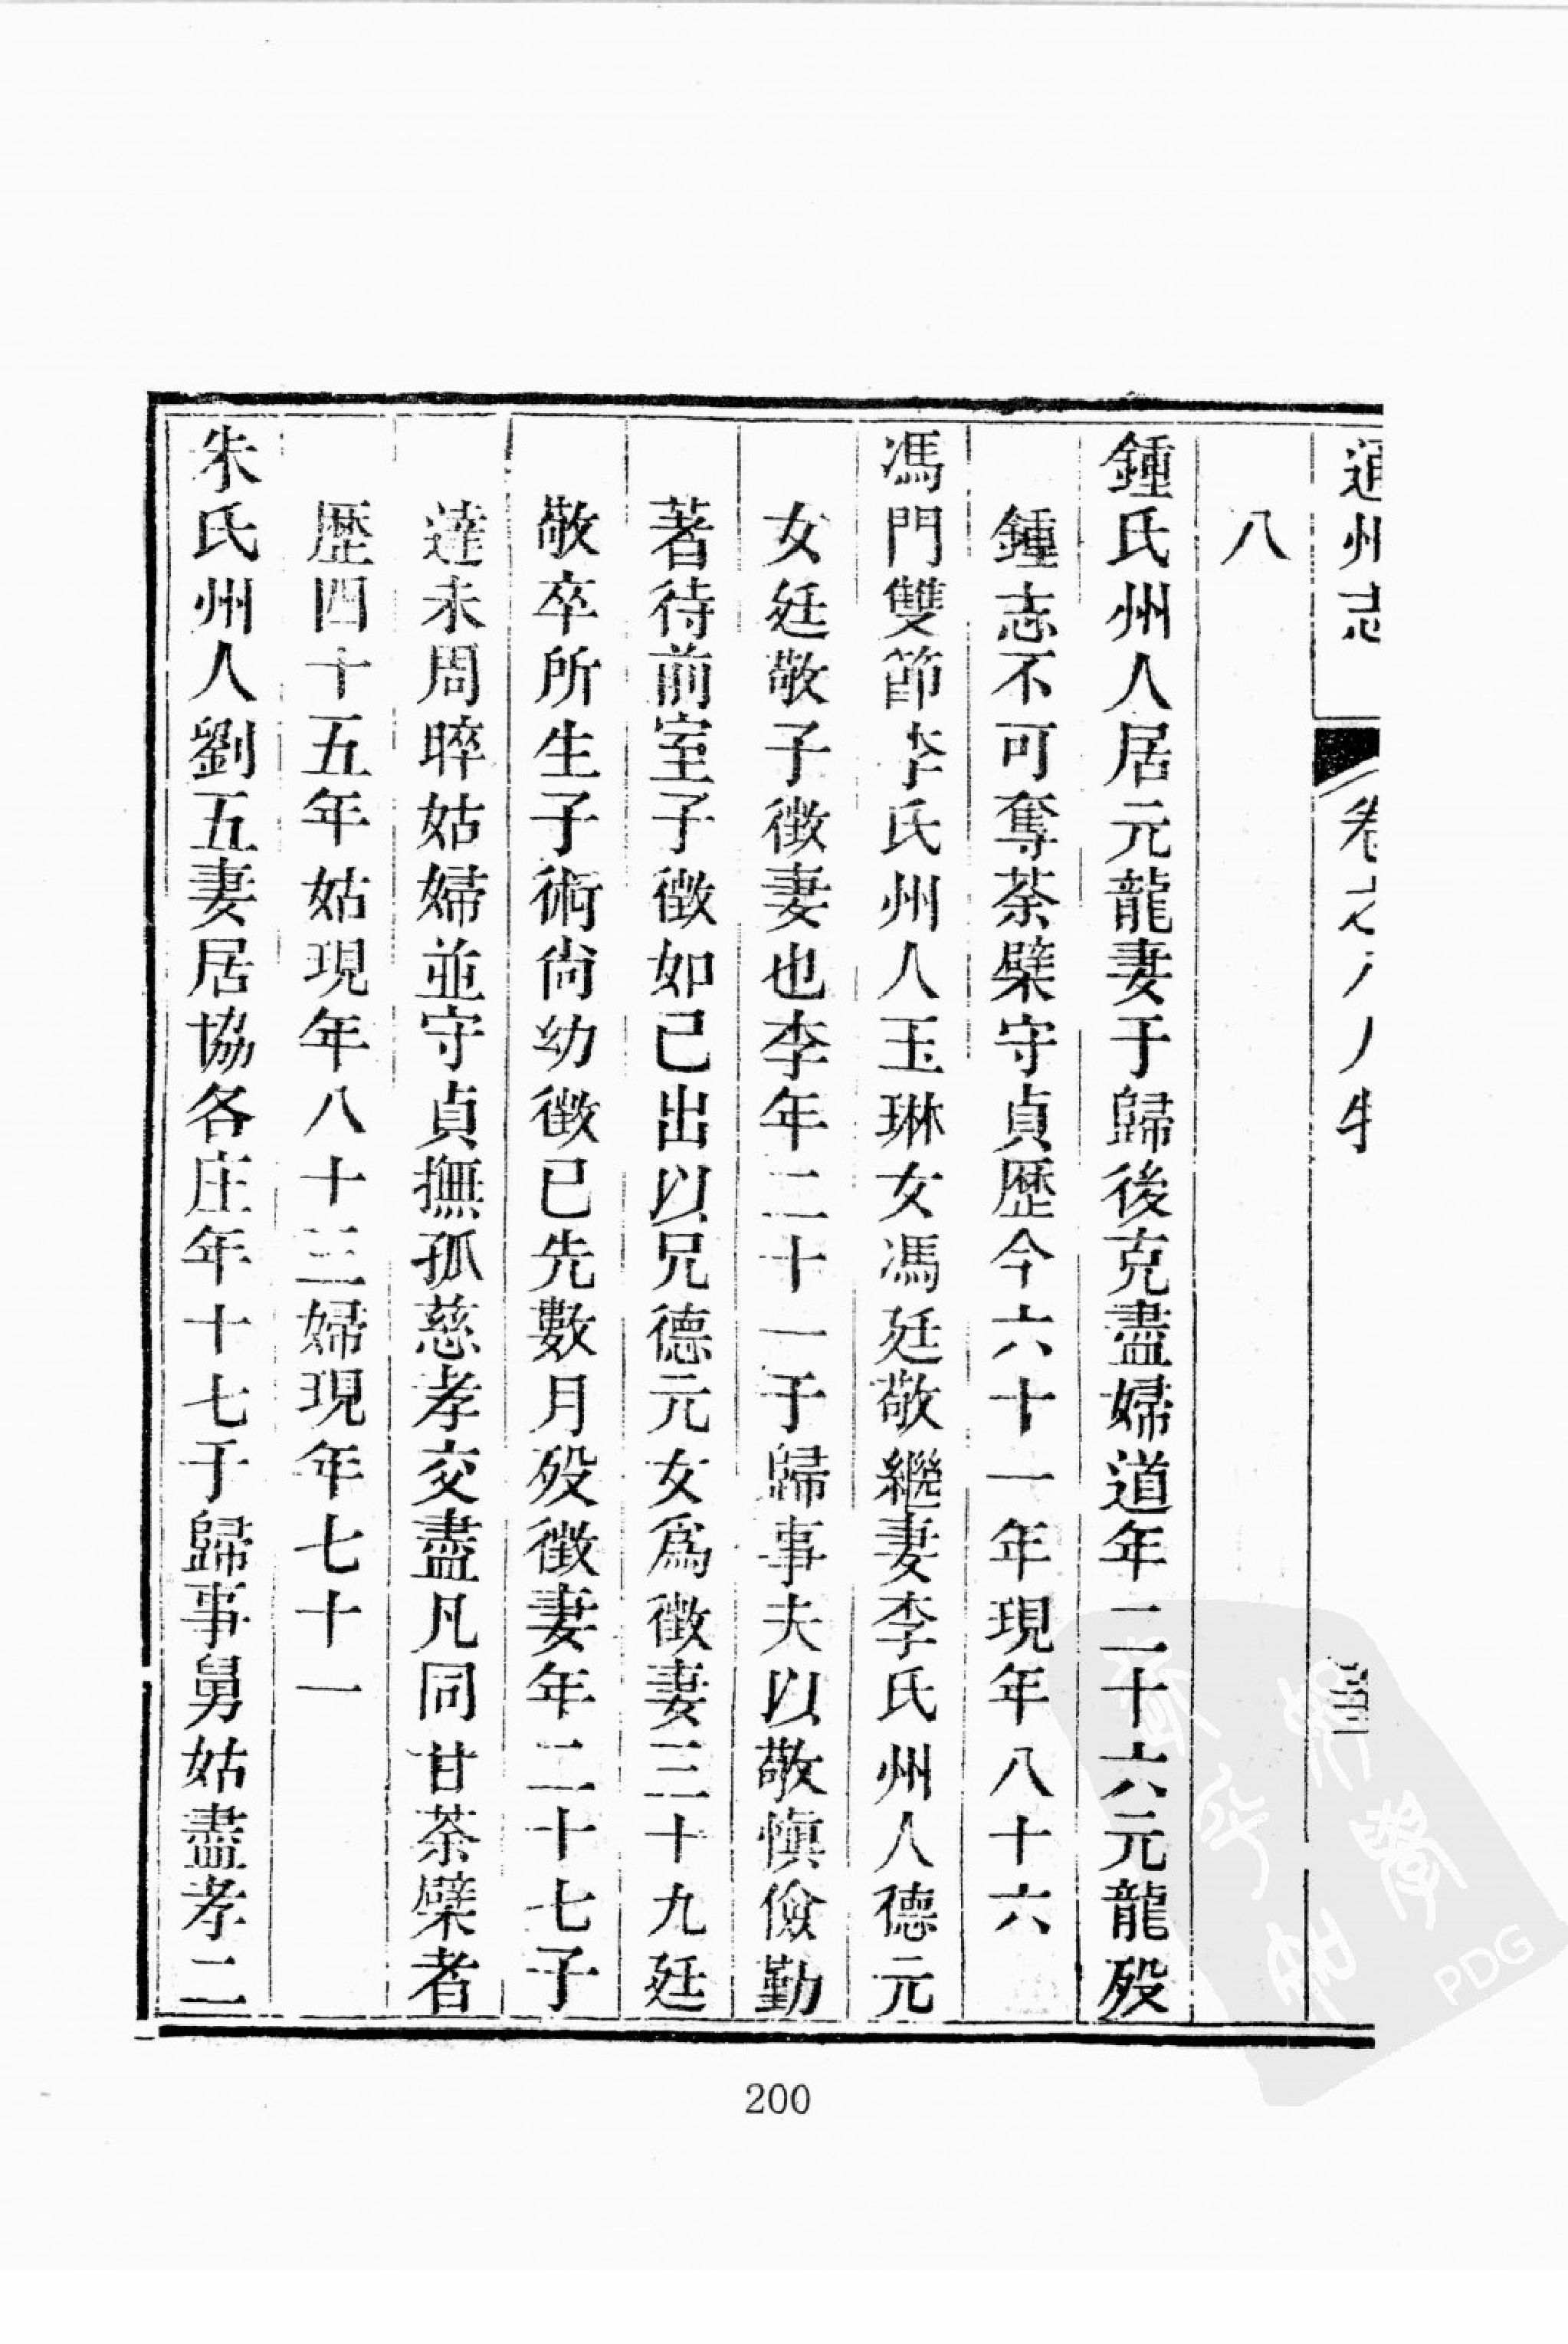 通州志 卷之八 人物
八
鍾氏州人居元龍妻于歸後克盡婦道年二十六元龍殁
鍾志不可奪荼檗守貞歴今六十一年現年八十六
馮門雙節李氏州人玉琳女馮廷敬繼妻李氏州人德元
女廷敬子徵妻也李年二十一于歸事夫以敬慎儉勤
著待前室子徵如己出以兄德元女爲徵妻三十九廷
敬卒所生子術尙幼徵已先數月殁徵妻年二十七子
達未周晬姑婦並守貞撫孤慈孝交盡凡同甘荼檗者
歴四十五年姑現年八十三婦現年七十一
朱氏州人劉五妻居協各庄年十七于歸事舅姑盡孝二
200
PDG